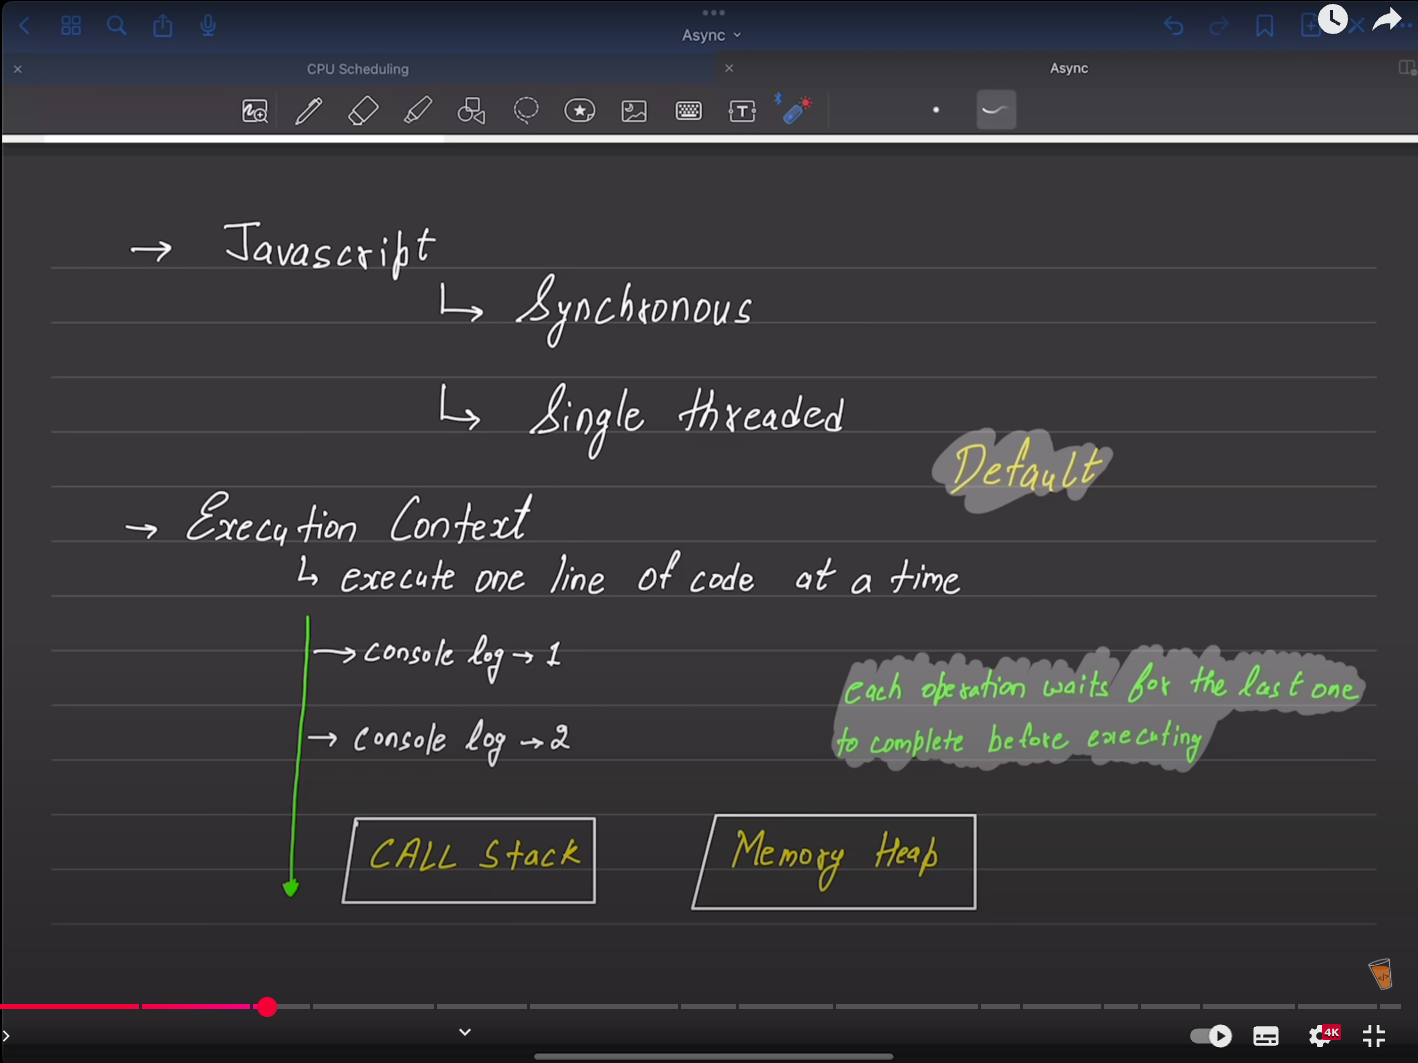 Async
CPU Scheduling
Async
T
→ Javascript
↳ Synchronous
↳ Single threaded
Default
→ Execution Context
↳ execute one line of code at a time
→ console log → 1
each operation waits for the last one
→ console log → 2
to complete before executing
CALL Stack
Memory Heap
4K